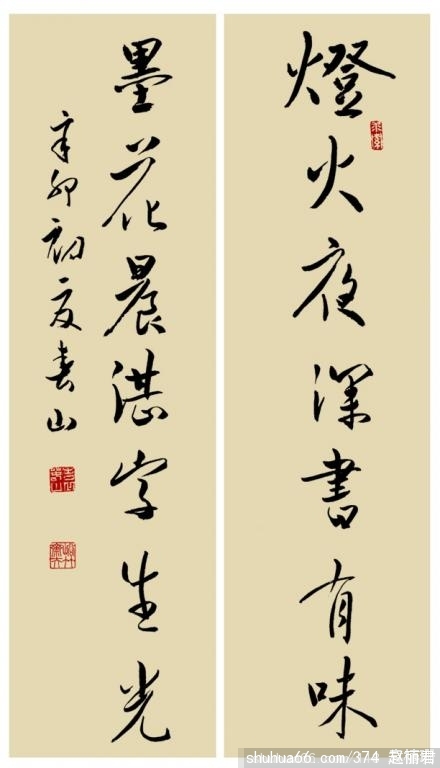 燈火夜深書有味
墨花晨湛字生光
辛卯初夏春山
shuhua66.com/374 赵楠君